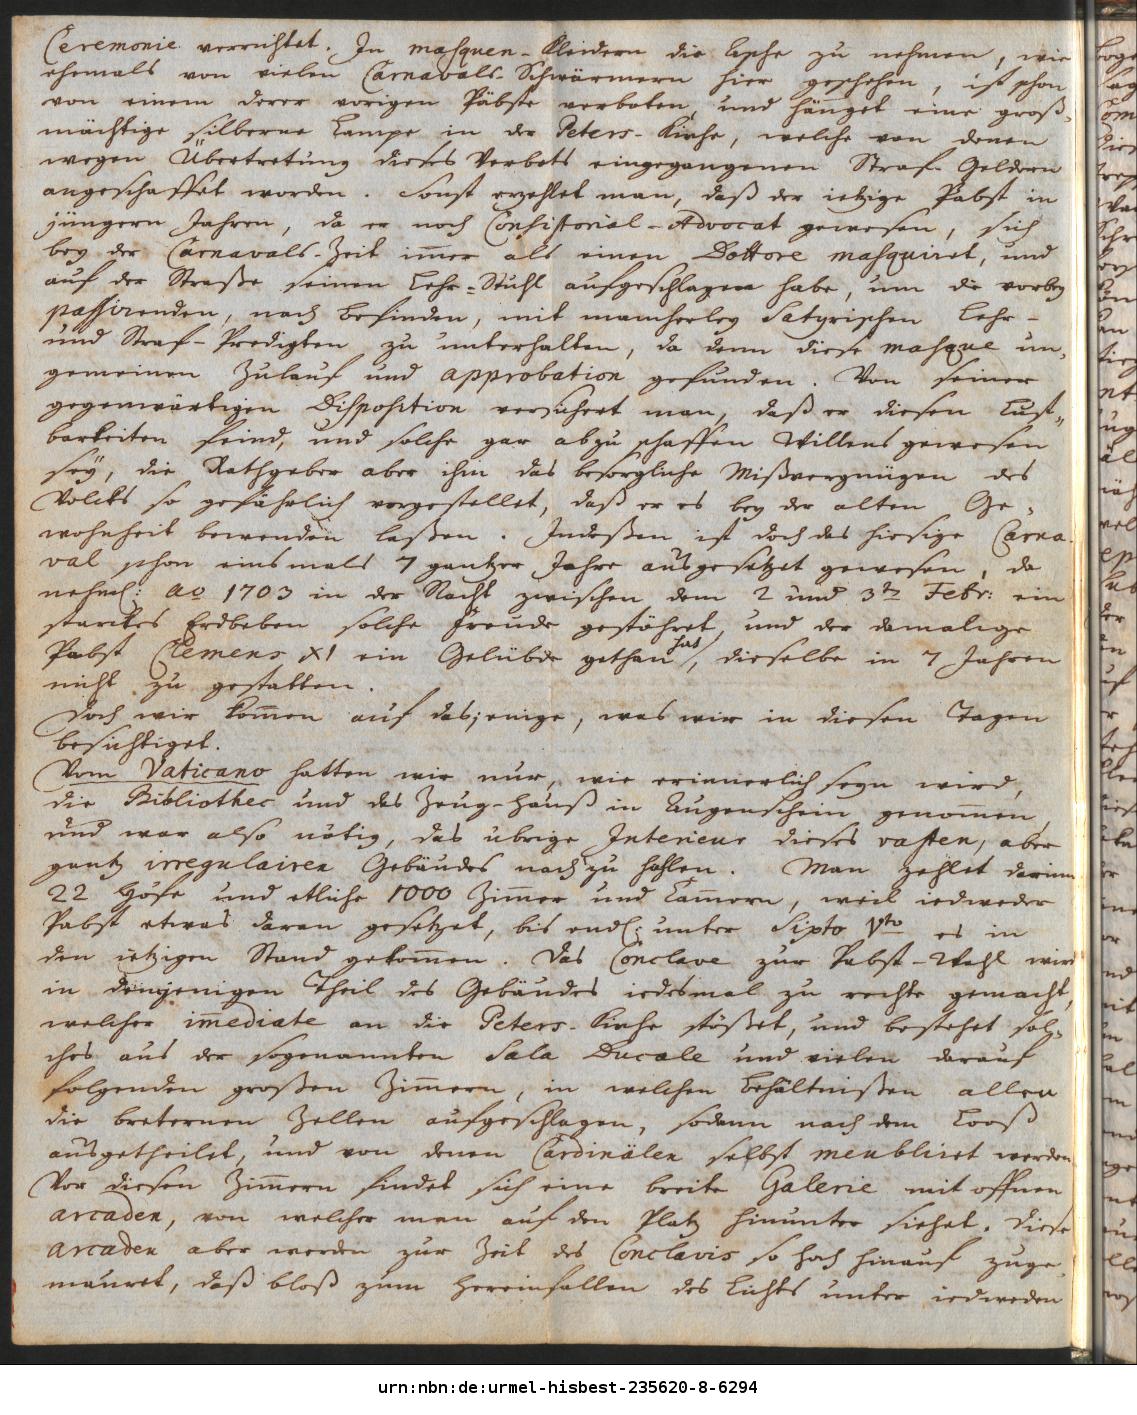 Ceremonie verrichtet. In masquen-Kleidern die Asche zu nehmen, wie
ehemals von vielen Carnavals-Schwärmern hier geschehen, ist schon
von einem derer vorigen Päbste verboten, und hänget eine groß-
mächtige silberne Lampe in der Peters-Kirche, welche von denen
wegen Übertretung dieses Verbots eingegangenen Straf-Geldern
angeschaffet worden. Sonst erzehlet man, daß der ietzige Pabst in
jüngern Jahren, da er noch Consistorial-Advocat gewesen, sich
bey der Carnavals-Zeit im̅er als einen Dottore masquiret, und
auf der Straße seinen Lehr-Stuhl aufgeschlagen habe, um die vorbey
passirenden, nach befinden, mit mancherley Satyrischen Lehr-
und Straf-Predigten zu unterhalten, da denn diese masque un-
gemeinen Zulauf und approbation gefunden. Von seiner
gegenwärtigen Disposition versichert man, daß er diesen Lust-
barkeiten feind, und solche gar abzuschaffen Willens gewesen
seÿ, die Rathgeber aber ihm das besorgliche Mißvergnügen des
Volcks so gefährlich vorgestellet, daß er es bey der alten Ge-
wohnheit bewenden laßen. Indeßen ist doch das hiesige Carna-
val schon einsmals 7 gantzer Jahre ausgesetzet gewesen, da
nehml: ao 1703 in der Nacht zwischen dem 2 und 3ten Febr: ein
starckes Erdbeben solche Freude gestöhret, und der damalige
Pabst Clemens XI ein Gelübde gethan hat, dieselbe in 7 Jahren
nicht zu gestatten.
Doch wir kom̅en auf dasjenige, was wir in diesen Tagen
besichtiget.
Vom Vaticano hatten wir nur, wie erinnerlich seyn wird,
die Bibliothec und das Zeug-Hauß in Augenschein genom̅en,
und war also nötig, das übrige Interieur dieses vasten, aber
gantz irregulairen Gebäudes nach zu hohlen. Man zehlet darinn
22 Höfe und etliche 1000 Zim̅er und Cam̅ern, weil iedweder
Pabst etwas daran gesetzet, bis endl: unter Sixto Vto es in
den ietzigen Stand gekom̅en. Das Conclave zur Pabst-Wahl wird
in demjenigen Theil des Gebäudes iedesmal zu rechte gemacht,
welcher im̅ediate an die Peters-Kirche stößet, und bestehet sol-
ches aus der sogenannten Sala Ducale und vielen darauf
folgenden großen Zim̅ern, in welchen Behältnißen allen
die breternen Zellen aufgeschlagen, sodann nach dem Looß
ausgetheilet, und von denen Cardinälen selbst meubliret werden
Vor diesen Zim̅ern findet sich eine breite Galerie mit offnen
arcaden, von welcher man auf den Platz hinunter siehet. Diese
arcaden aber werden zur Zeit des Conclavis so hoch hinauf zuge-
mauret, daß bloß zum Hereinfallen des Lichts unter iedweden
urn:nbn:de:urmel-hisbest-235620-8-6294